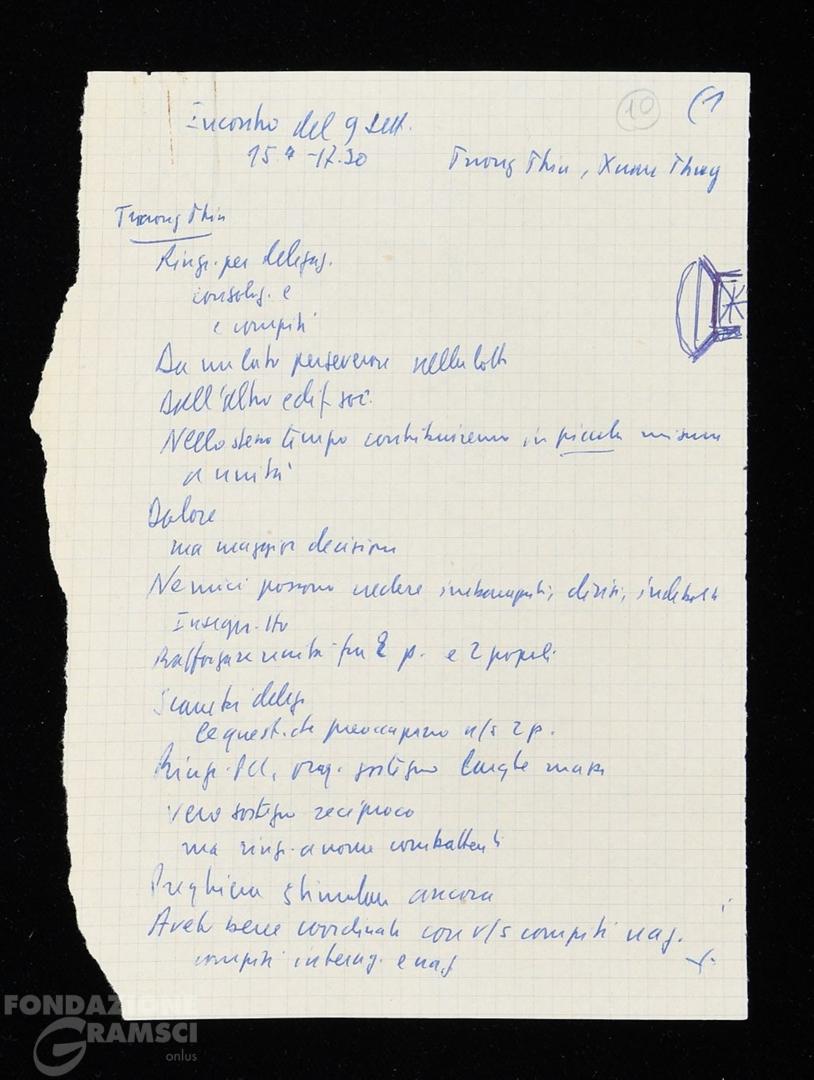 10 (1
Incontro del 9 sett.
15 -17.30 Truong Thin, Xuan Thuy
Truong Thin
Ring. per delegaz.
consolid. e
e compiti
Da un lato perseverare nella lotta
Dall'altro edif. soc.
Nello stesso tempo contribuiremo in piccola misura
a unità
Dolore
ma maggior decisione
Nemici possono vedere
Rafforzare unità fra 2 p. e 2 popoli
Scambi deleg.
le quest. che preoccupano n/s 2 p.
Ring. PCI, org. sostegno larghe masse
Vero sostegno reciproco
ma ring. a nome combattenti
Preghiera stimolare ancora
Avete bene coordinati con v/s compiti naz.
compiti internaz. e naz.
FONDAZIONE
GRAMSCI
onlus